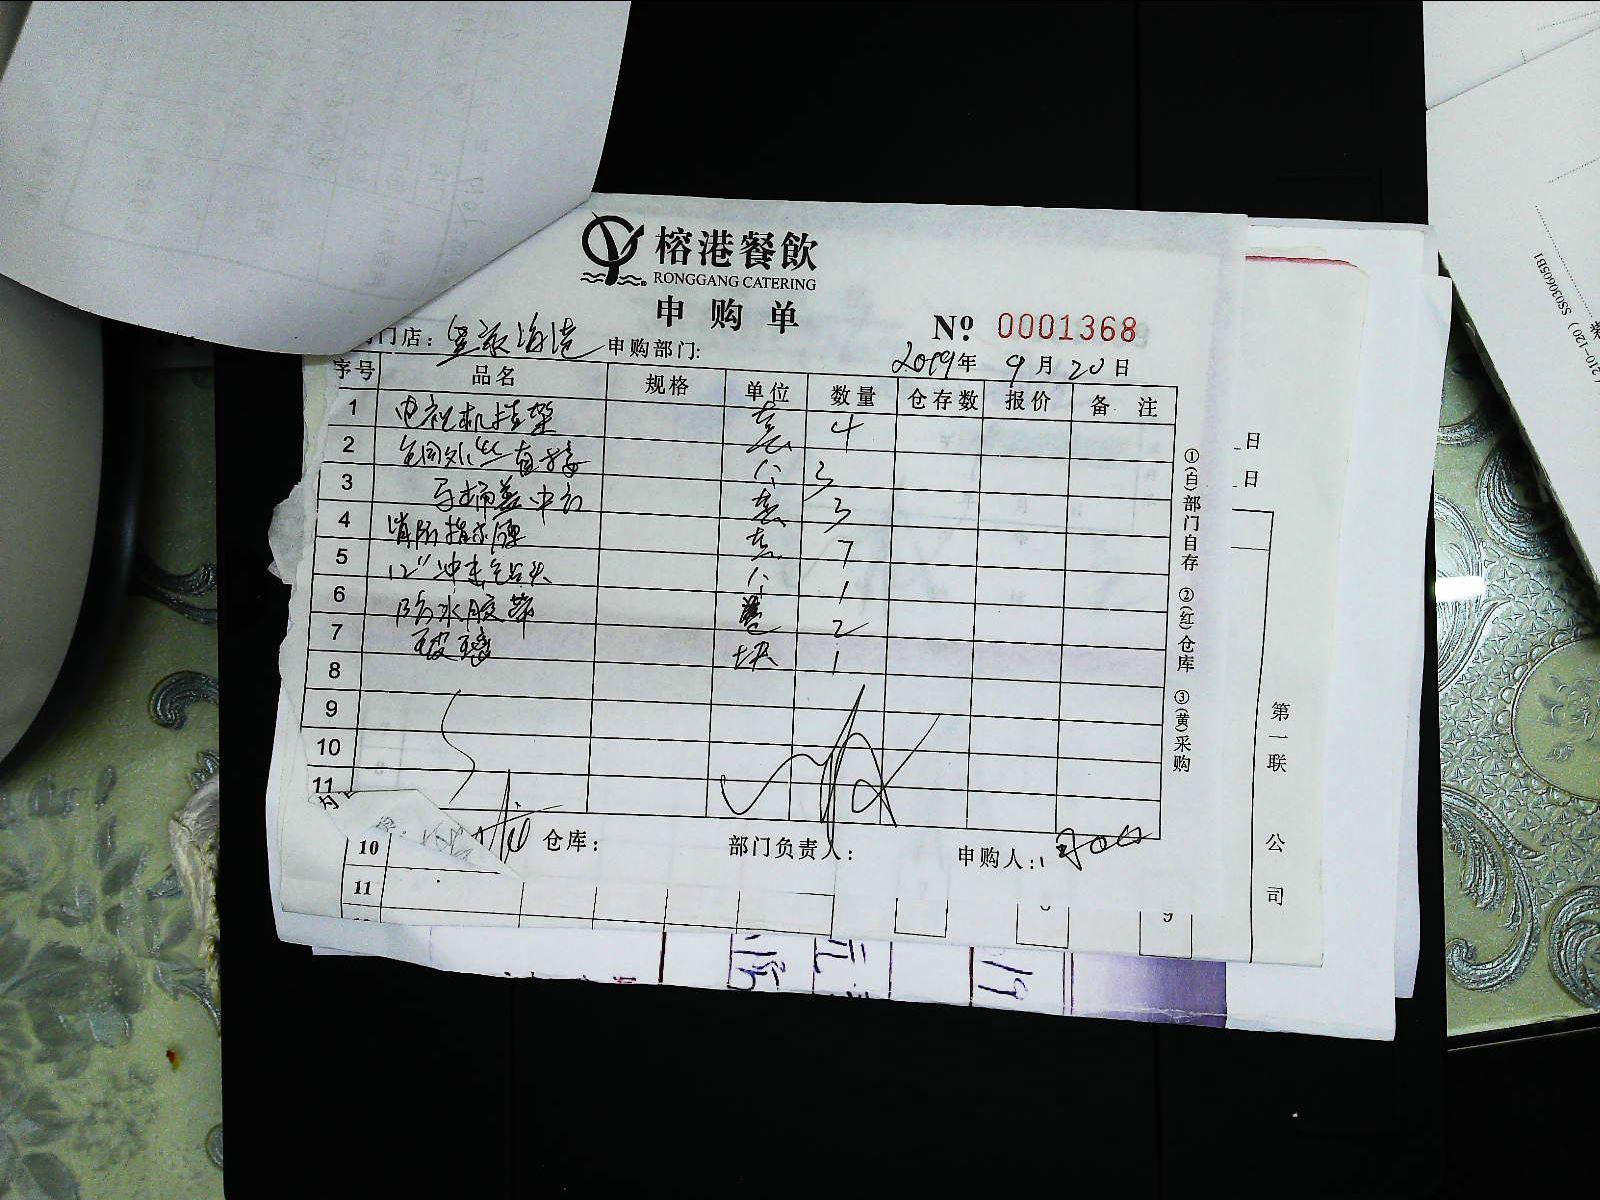 榕港餐飲
RONGGANG CATERING
申购单
Nº 0001368
门店： 海港 申购部门:
2019年 9月20日
字号 品名 规格 单位 数量 仓存数 报价 备注
1 电视机挂架 套 4
2 外丝直接 个 3
3 马桶盖 套 3
4 消防指示牌 套 7
5 12" 冲击钻头 个 1
6 防水胶带 卷 2
7 玻璃 块 1
8
9
10
11
仓库： 部门负责人： 申购人：
①(白)部门自存 ②(红)仓库 ③(黄)采购
10
11
9
日
日
第一联 公司
19
SS030605B1